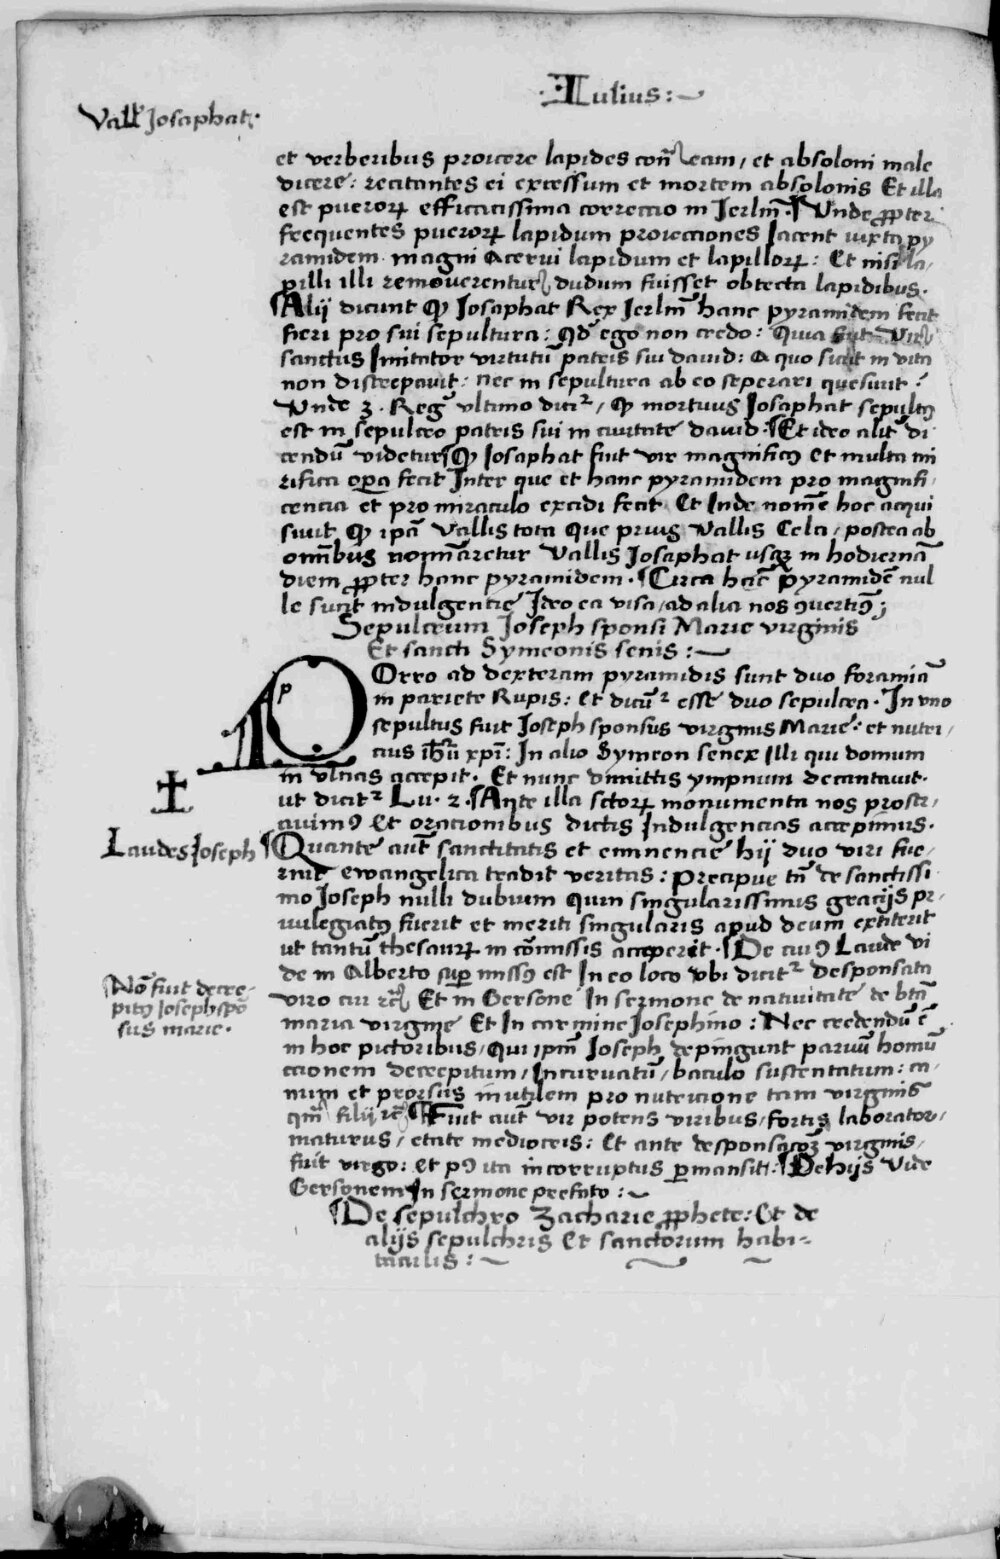 Iulius:
Vall' Josaphat.
et verberibus proicere lapides con̄ eam, et absoloni male
dicere: recitantes ei excessum et mortem absolonis Et illa
est pueroꝝ efficacissima correctio in Jerlm̄. ¶ Unde ꝓpter
frequentes pueroꝝ lapidum proiectiones Jacent iuxta py
ramidem magni acerui lapidum et lapilloꝝ: Et nisi la,
pilli illi removerentur, dudum fuisset obtecta lapidibus.
¶ Alij dicunt ꝙ Josaphat Rex Jerlm̄ hanc pyramidem fecit
fieri pro sui sepultura: qd̄ ego non credo: Quia fuit Vir
sanctus Imitator virtutū patris sui david: a quo sicut in vita
non discrepavit: nec in sepultura ab eo seperari quesivit:
Unde 3. Reg. vltimo dicit², ꝙ mortuus Josaphat sepultꝰ
est in sepulcro patris sui in civitate david. ¶ Et ideo alit̄ di
cendū videtur ꝙ Josaphat fuit vir magnificꝰ et multa mi
rifica oꝑa fecit Inter que et hanc pyramidem pro magnifi
cencia et pro miraculo excidi fecit Et Inde nomē hoc acqui
siuit ꝙ ipā Vallis tota que prius Vallis Cela, postea ab
om̄ibus nomi̅aretur Vallis Josaphat usqꝫ in hodiernā
diem ꝓpter hanc pyramidem. ¶ Circa hāc pyramidē nul
le sunt indulgencie Ideo ea visa, ad alia nos ꝯvertimꝰ;
Sepulcrum Joseph sponsi Marie virginis
Et sancti Symeonis senis:
PORRO ad dexteram pyramidis sunt duo foramīa
in pariete Rupis: et dicūt² esse duo sepulcra. In uno
sepultus fuit Joseph sponsus virginis Marie: et nutri,
cius ih̄u xpī: In alio Symeon senex Illi qui domum
in vlnas accepit. Et nunc dimittis ympnum decantauit.
ut dicit² Lu. 2. ¶ Ante illa sctoꝝ monumenta nos prostr,
auimꝰ et orationibus dictis Indulgencias accepimus.
Laudes Joseph
¶ Quante aut̄ sanctitatis et eminencie hij duo viri fue,
rint ewangelica tradit veritas: Precipue tn̄ de sanctissi
mo Joseph nulli dubium quin singularissimis gracijs pr,
iuilegiatꝰ fuerit et meriti singularis apud deum extiterit
ut tantū thesauꝝ in cōmissis acceperit. ¶ De cuiꝰ Laude vi
de in Alberto suꝑ missꝰ est In eo loco ubi dicit² Desponsata
viro cui rc̄ Et in Gersone In sermone de nativitate de btā
maria virgine Et In carmine Josephino: Nec credendū ē
Nō fuit decre-
pitꝰ Joseph spō
sus marie.
in hoc pictoribus, qui ipm̄ Joseph depingunt parvū homū
cionem decrepitum, Incurvatū, baculo sustentatum: ca,
num et prorsus inutilem pro nutricione tam virginis
qm̄ filij rc̄ ¶ Fuit aut̄ vir potens viribus, fortis laborator,
maturus, etate mediocris: Et ante desponsacōꝫ virginis,
fuit virgo: et pꝰ ita incorruptus ꝑmansit: ¶ De hijs Vide
Gersonem In sermone prefato:
¶ De sepulchro Zacharie ꝓphete: Et de
alijs sepulchris Et sanctorum habi-
taculis: